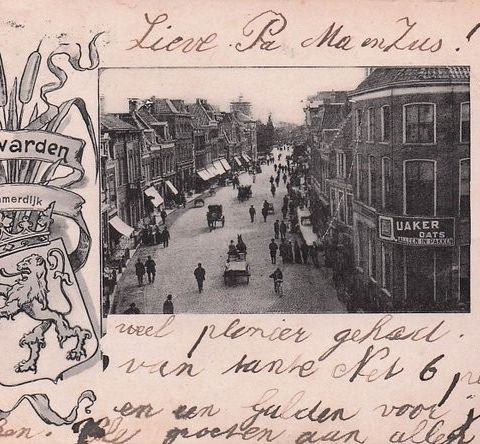 Lieve Pa Ma en Zus!
warden
merdijk
UAKER
OATS
ALLEEN IN PAKKEN
veel plenier gehad.
van tante Net 6
en een Gulden voor
groeten aan allen